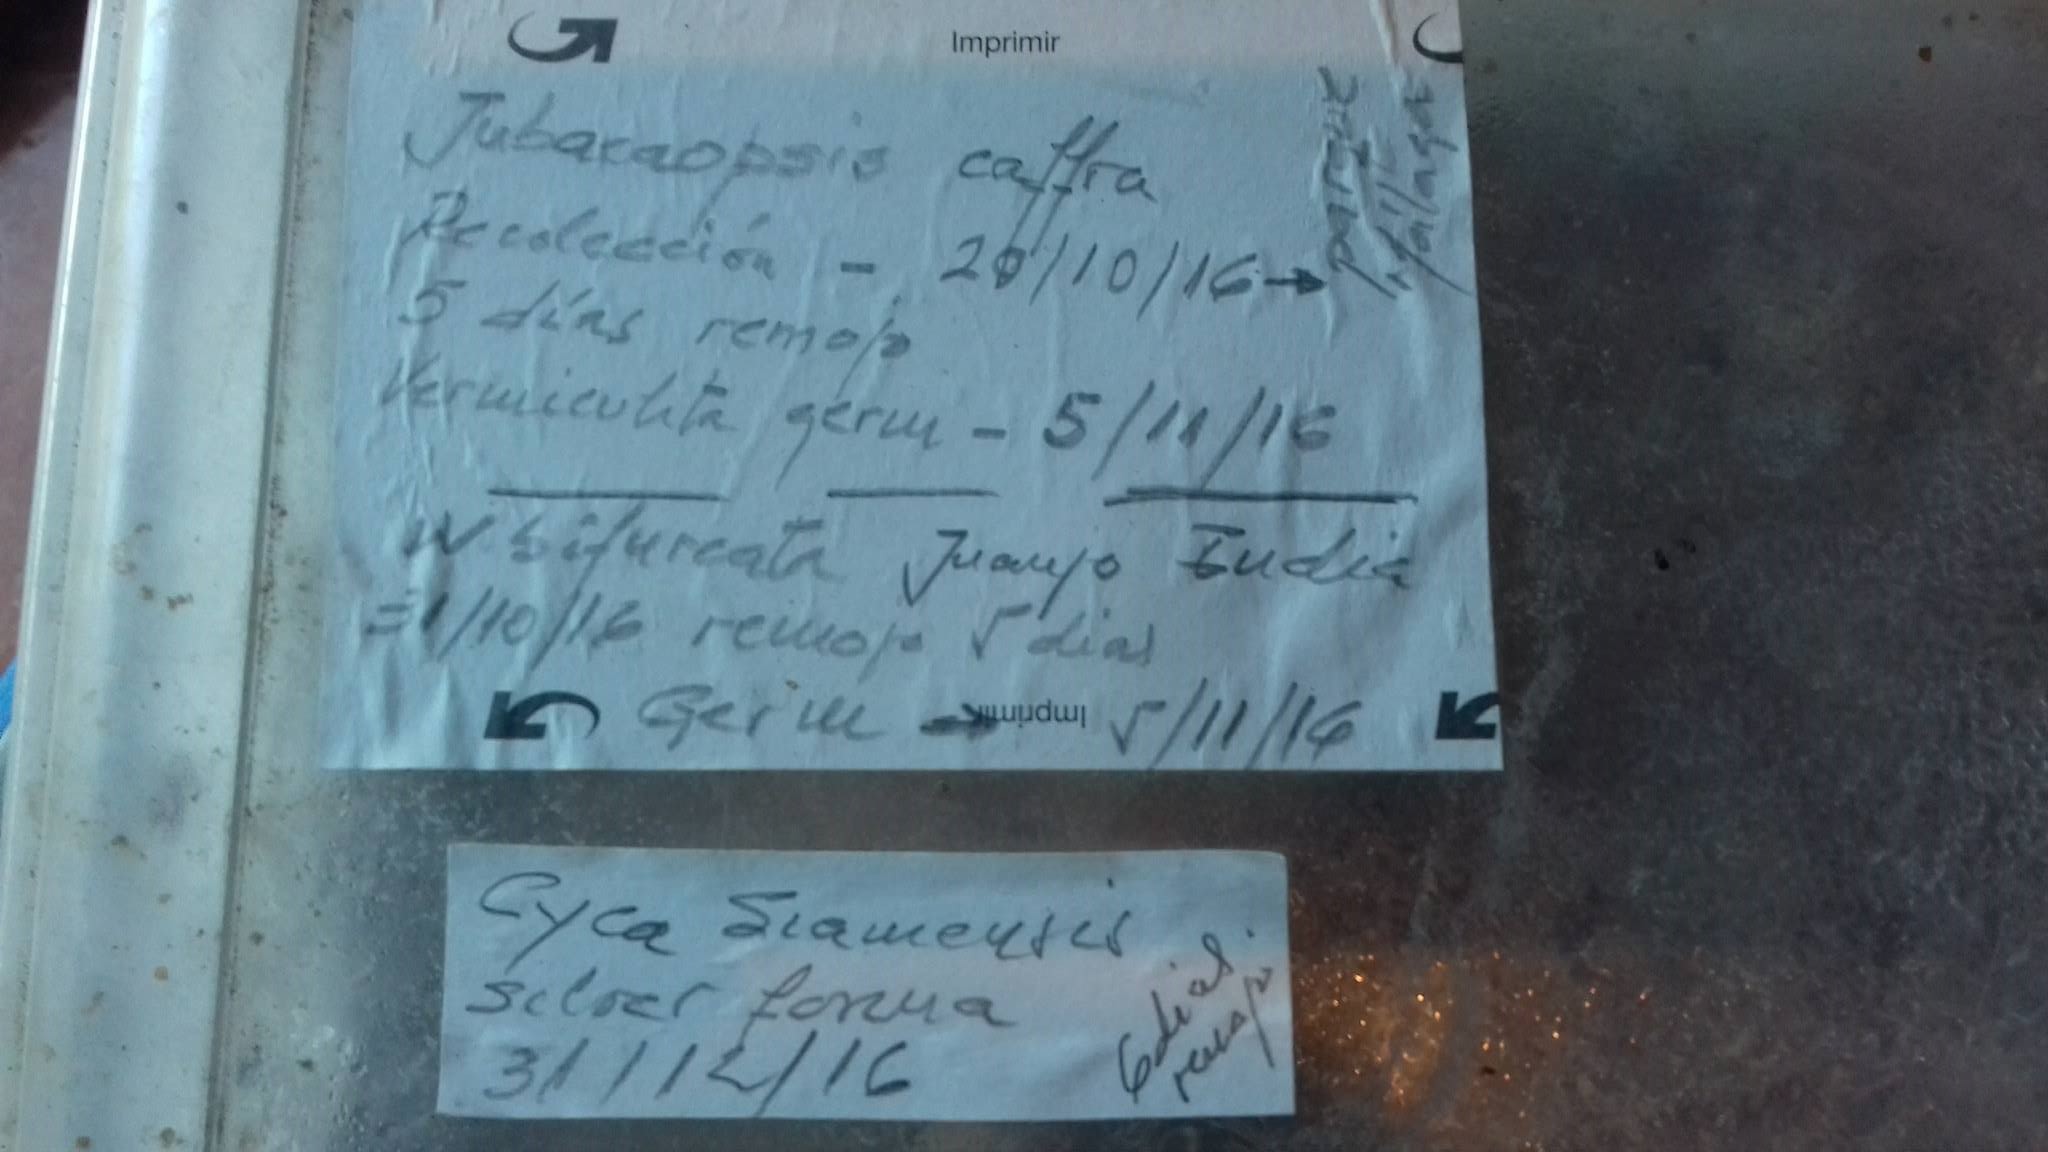 Imprimir
Jubacaopsis caffra
Recolección - 20/10/16 → parque
Málaga
5 días remojo
Vermiculita germ - 5/11/16
W bifurcata Juanjo India
=1/10/16 remojo 5 dias
Germ → 5/11/16
Imprimir
Cyca Siamensis
silver forma
31/12/16
6 dias
remojo